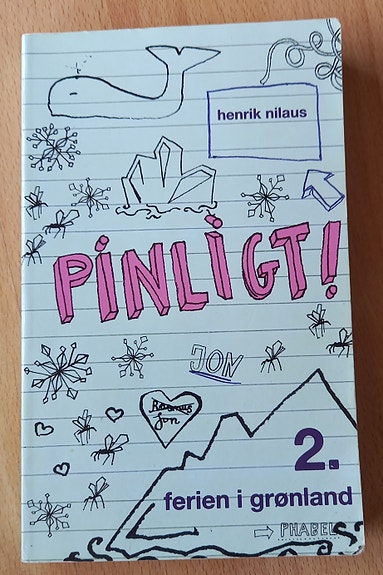 henrik nilaus
PiNLiGT!
JON
Rasmus
Jon
2.
ferien i grønland
PHABEL